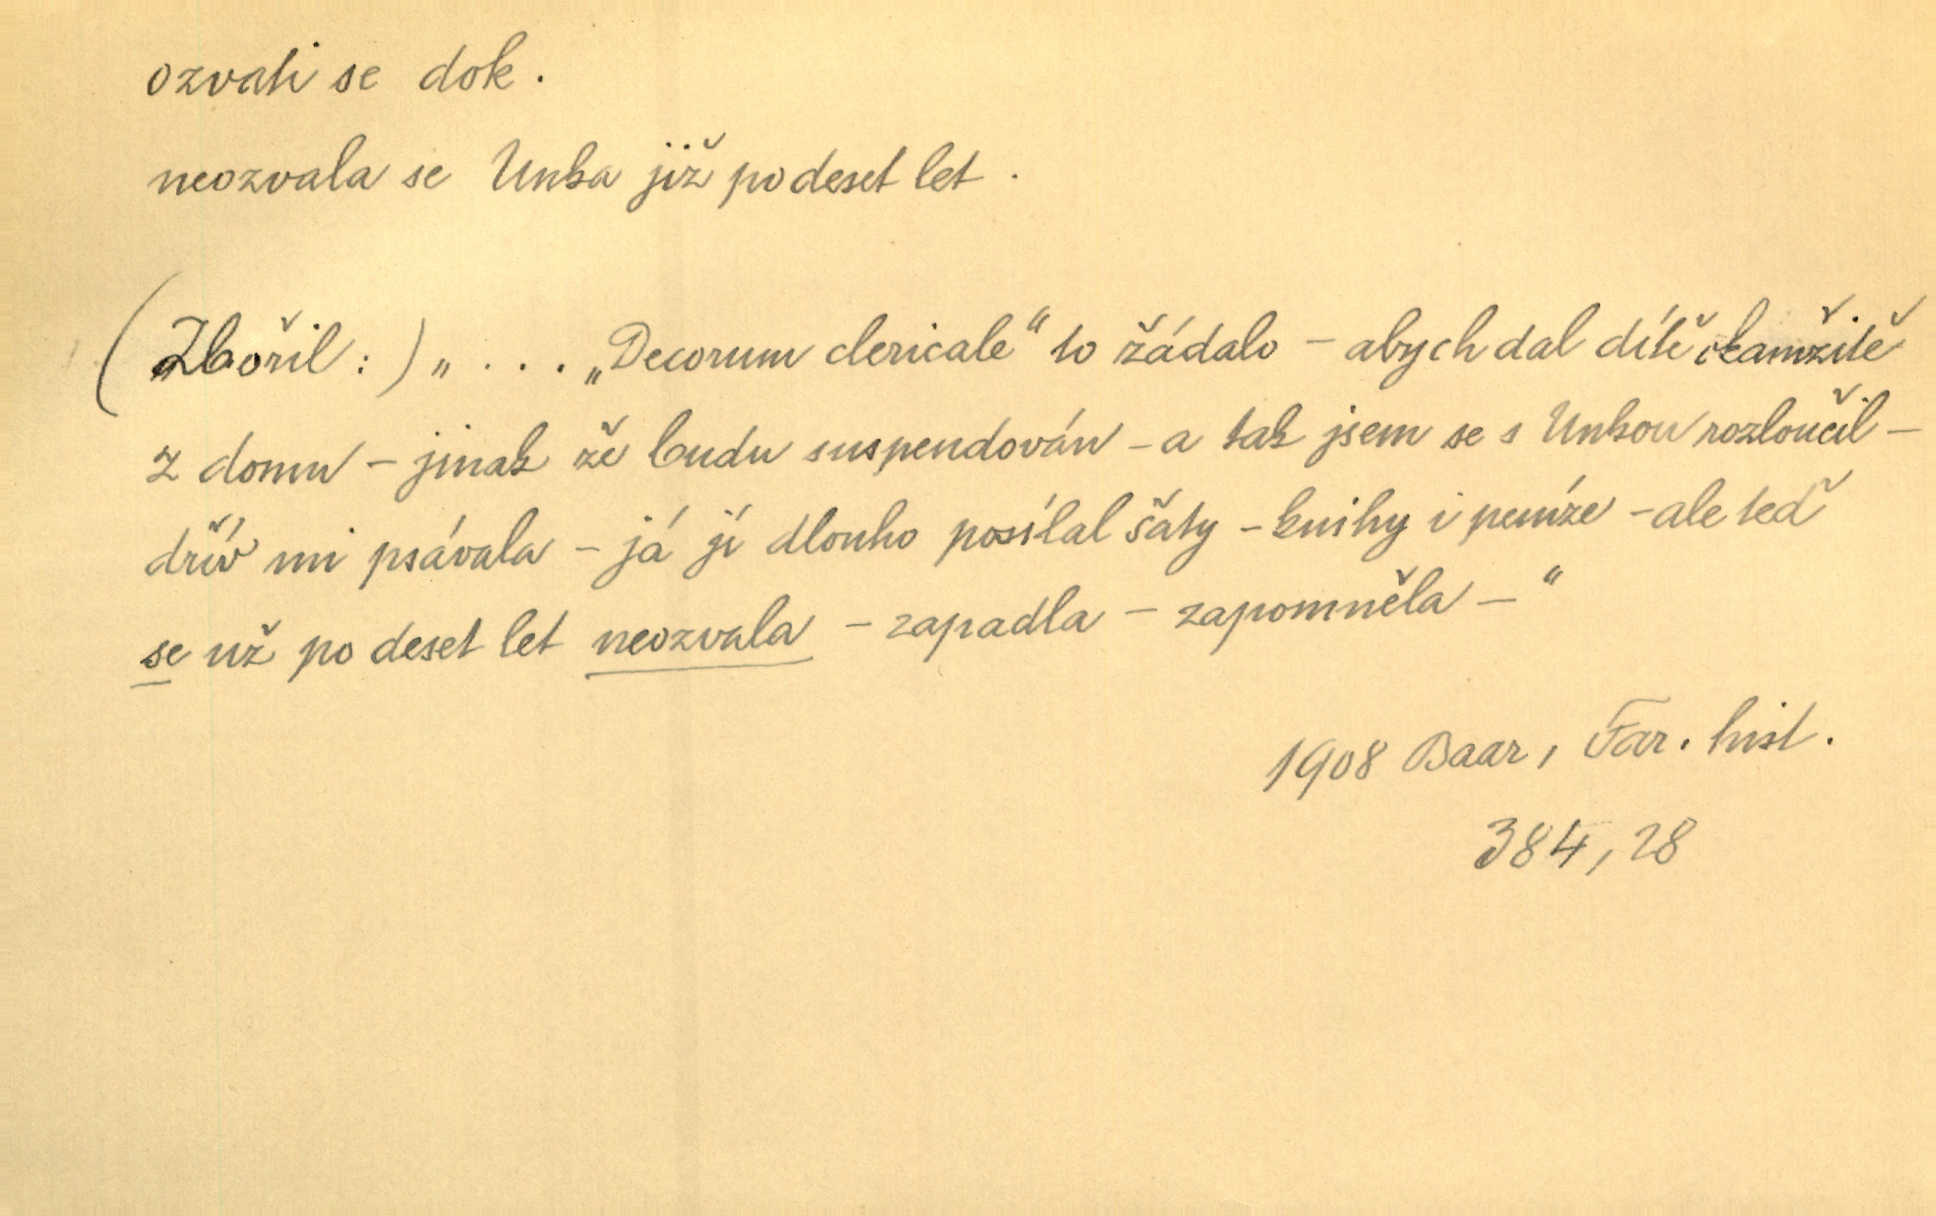 ozvati se dok.
neozvala se Unka již po deset let.
(Zbořil:) „ . . . „Decorum clericale“ to žádalo – abych dal dítě okamžitě
z domu – jinak že budu suspendován – a tak jsem se s Unkou rozloučil –
dřív mi psávala – já jí dlouho posílal šaty – knihy i peníze – ale teď
se už po deset let neozvala – zapadla – zapomněla – “
1908 Baar, Far. hist.
384, 28